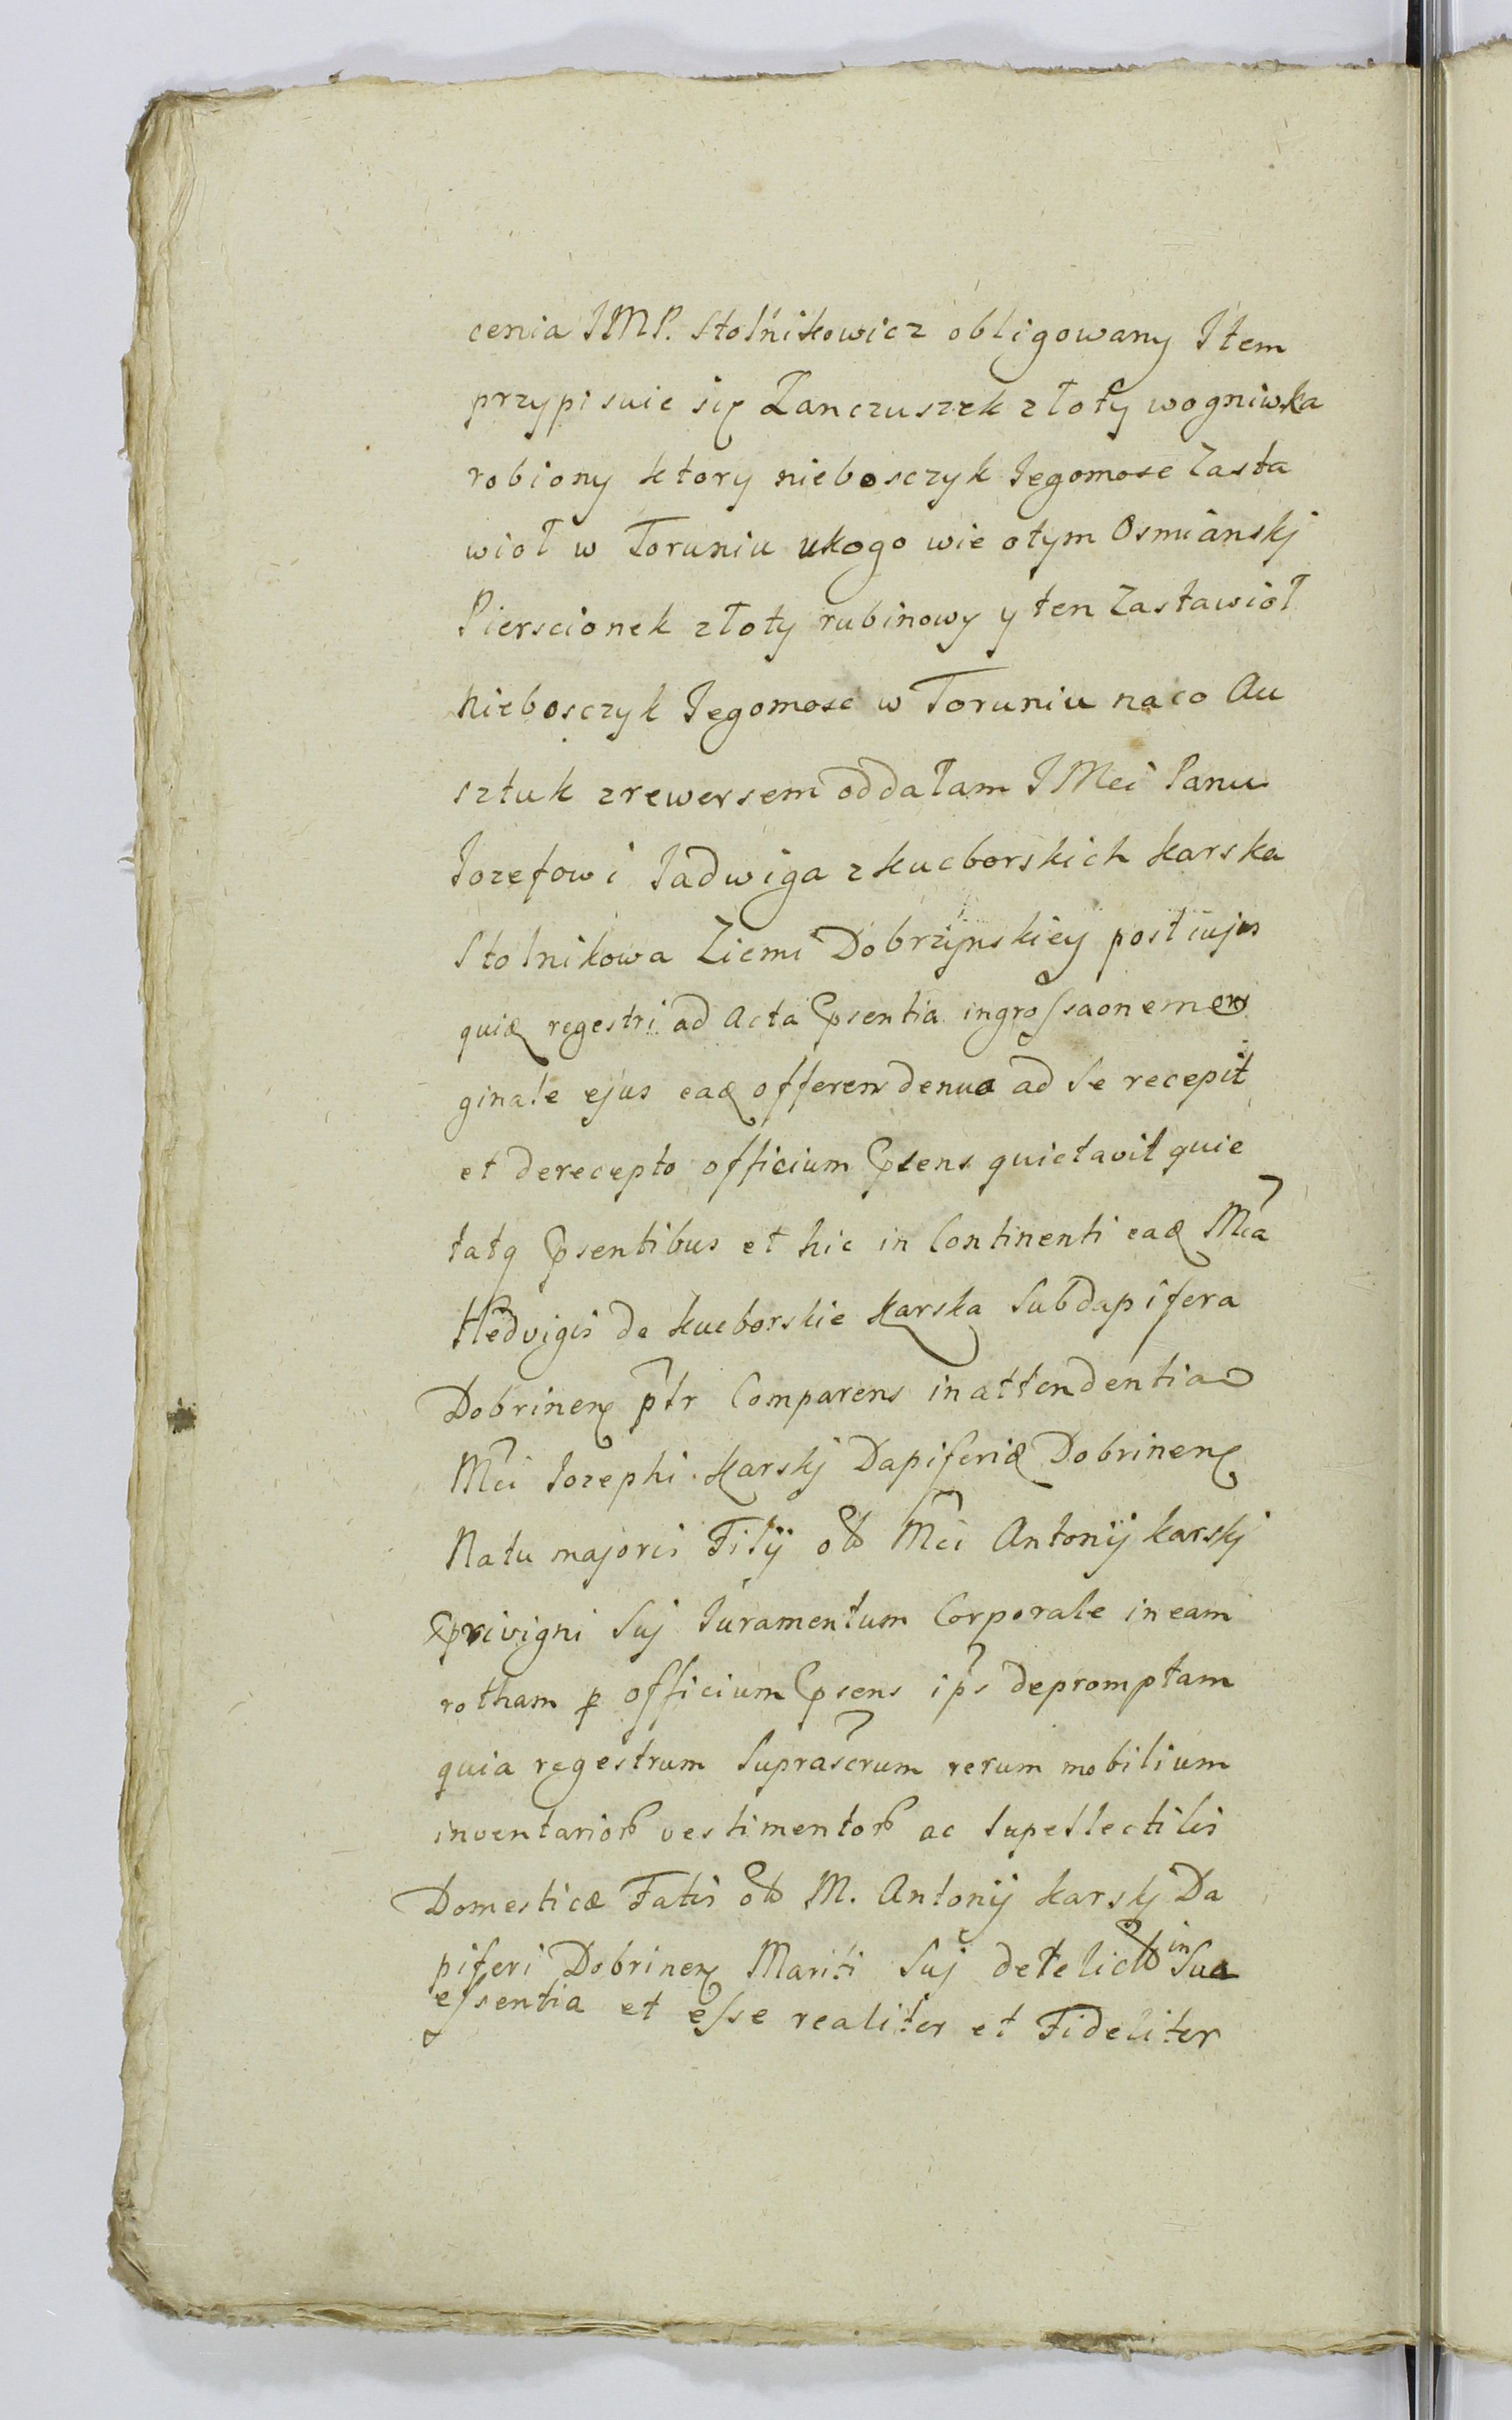 cenia JMP. Stolnikowicz obligowany Item
przypisuie się Łanczuszek złoty wogniwka
robiony ktory nieboszczyk Jegomosc Zasta
wioł w Toruniu ukogo wie otym Osmianskj
Pierscionek złoty rubinowy y ten Zastawioł
Niebosczyk Jegomosc w Toruniu naco Au
sztuk zrewersem oddałam JMci Panu
Jozefowi Jadwiga zkucborskich karska
Stolnikowa Ziemi Dobrzynskiey post cujus
quidẽ regestri ad Acta Pñsentia ingrossaonem ori
ginale ejus eadẽ offeren denuo ad Se recepit
et derecepto officium Pñsens quietavit quie
tatq Pñsentibus et hic in Continenti eadẽ Mca
Hedvigis de kucborskie karska Subdapifera
Dobrinen ptr Comparens in attendentiam
Mci Jozephi karskj Dapiferidẽ Dobrinen
Natu majoris Filij olim Mci Antonij karskj
Privigni Suj Juramentum Corporale in eam
rotham p officium Pñsens ips depromptam
quia regestrum Suprascrum rerum mobilium
inventarior vestimentor ac Supellectilis
Domesticæ Fatis olim M. Antonij karskj Da
piferi Dobrinen Mariti Suj derelict in Sua
essentia et esse realiter et Fideliter